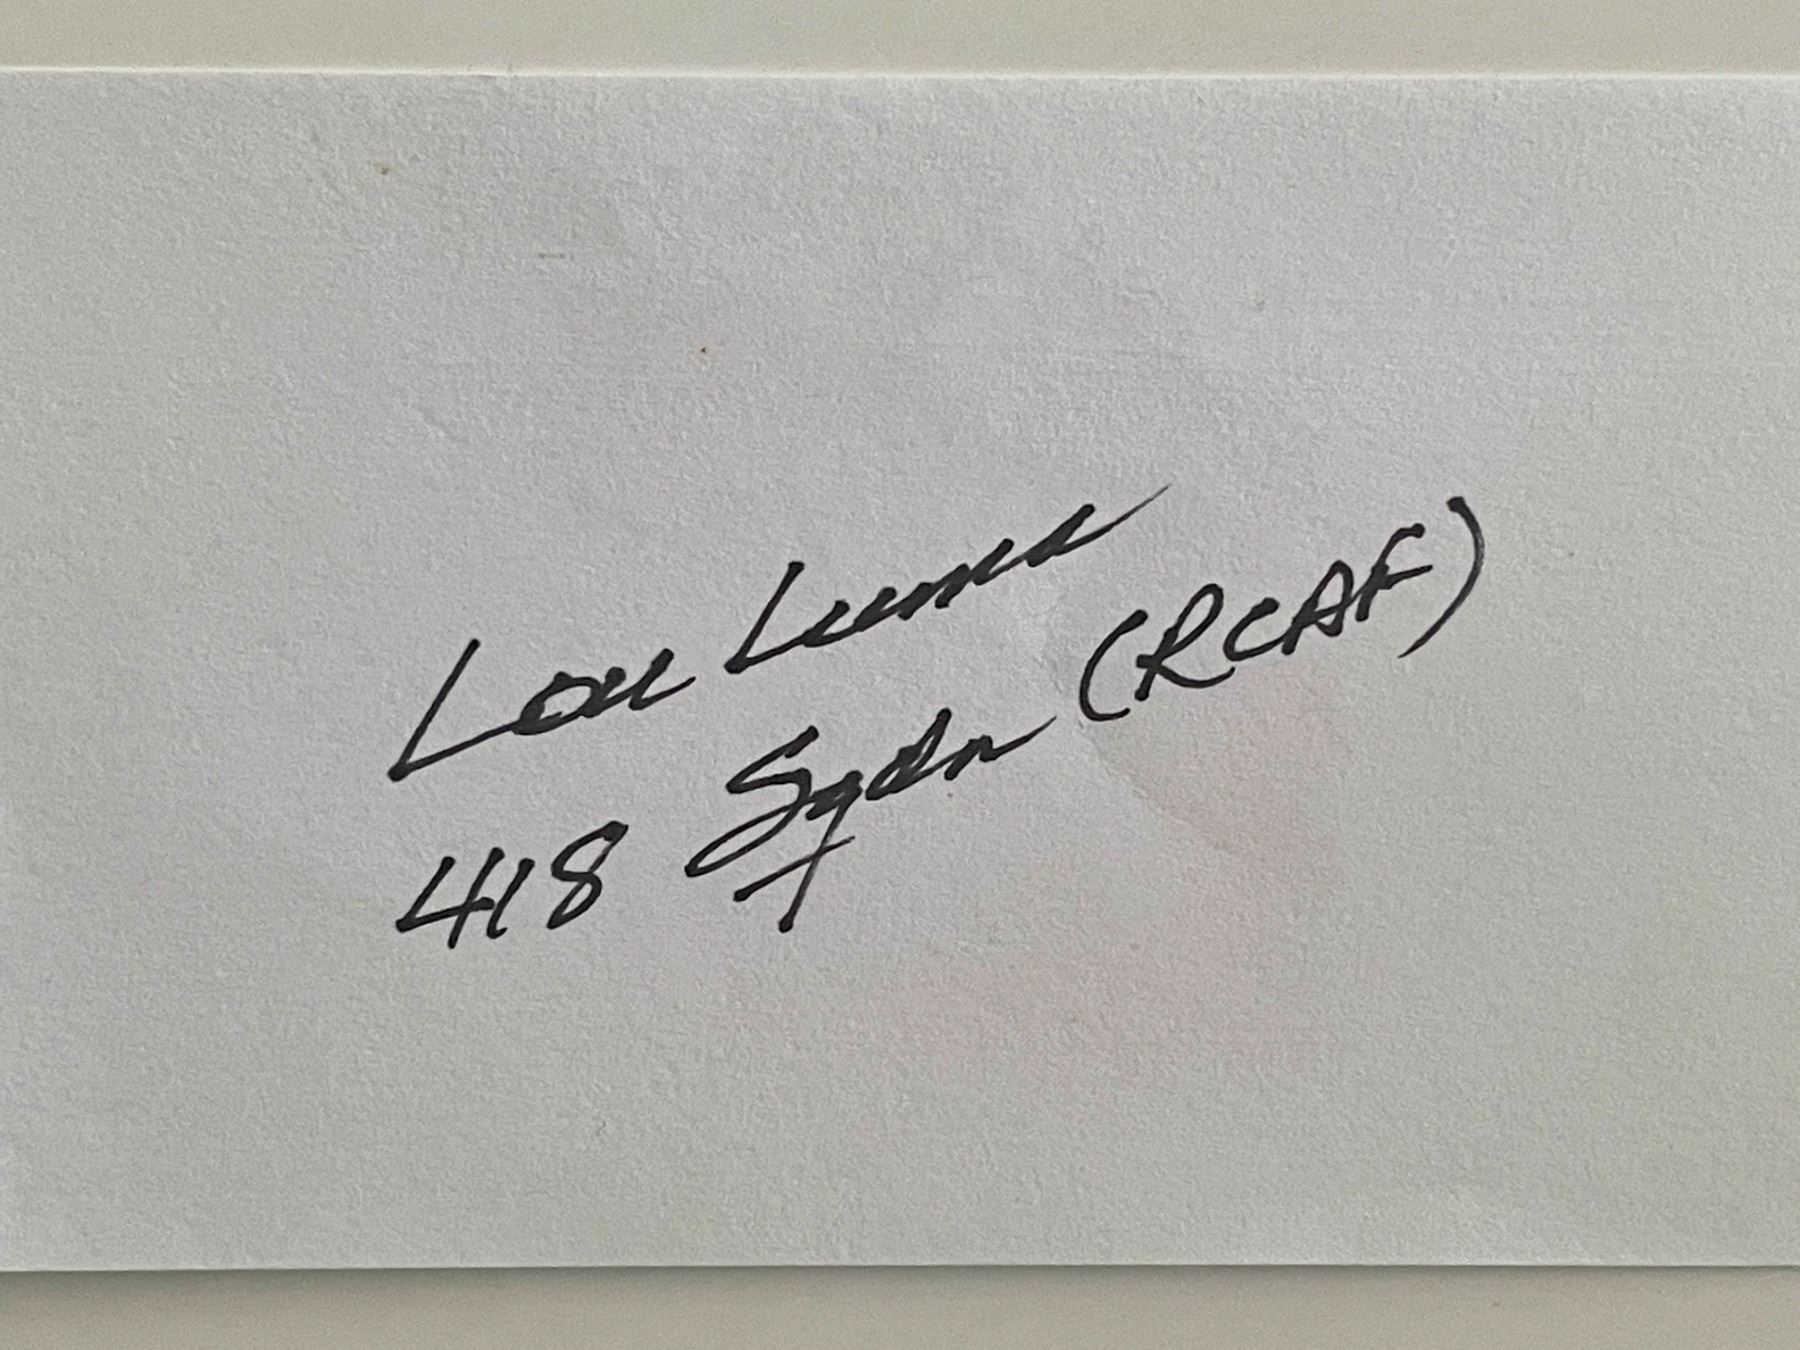 Lou Luma
418 Sqdn (RCAF)